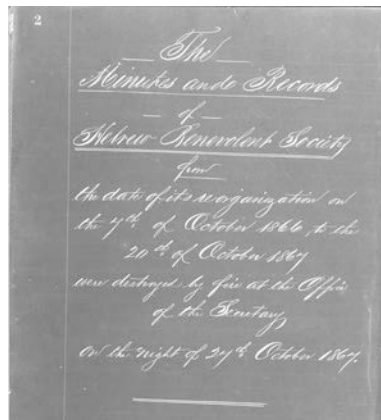 2
The
Minutes and Records
of
Hebrew Benevolent Society
from
the date of its reorganization on
the 7th of October 1866, to the
20th of October 1867
were destroyed by fire at the Office
of the Secretary
on the night of 27th October 1867.